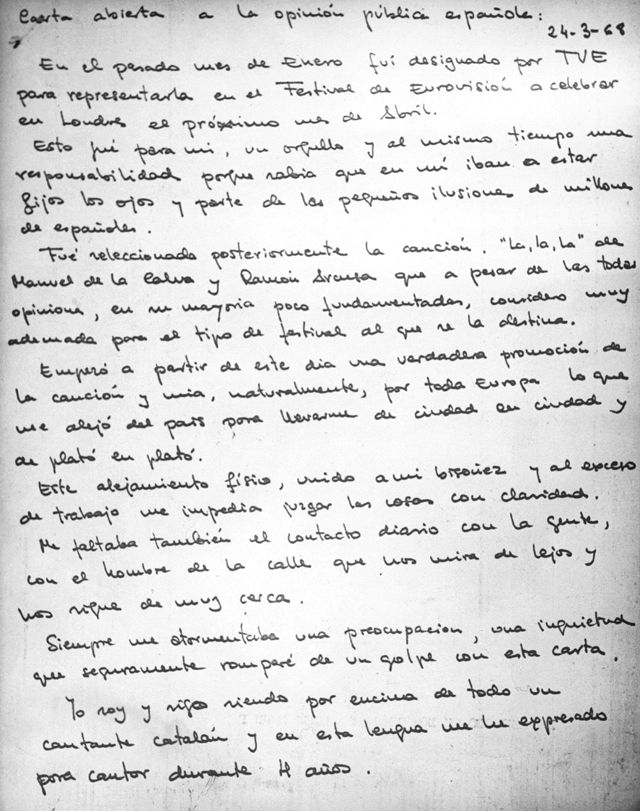 Carta abierta a la opinión pública española:
24-3-68
En el pasado mes de Enero fuí designado por TVE
para representarla en el Festival de Eurovisión a celebrar
en Londres el próximo mes de Abril.
Esto fué para mi, un orgullo y al mismo tiempo una
responsabilidad porque sabia que en mí iban a estar
fijos los ojos y parte de las pequeñas ilusiones de millones
de españoles.
Fué seleccionada posteriormente la canción. "La, la, la" de
Manuel de la Calva y Ramón Arcusa que a pesar de las todas
opiniones, en su mayoria poco fundamentadas, considero muy
adecuada para el tipo de festival al que se la destina.
Empezó a partir de este dia una verdadera promoción de
la canción y mia, naturalmente, por toda Europa lo que
me alejó del pais para llevarme de ciudad en ciudad y
de plató en plató.
Este alejamiento físico, unido a mi bisoñez y al exceso
de trabajo me impedia juzgar las cosas con claridad.
Me faltaba también el contacto diario con la gente,
con el hombre de la calle que nos mira de lejos y
nos sigue de muy cerca.
Siempre me atormentaba una preocupacion, una inquietud
que seguramente romperé de un golpe con esta carta.
Yo soy y sigo siendo por encima de todo un
cantante catalán y en esta lengua me he expresado
para cantar durante 4 años.